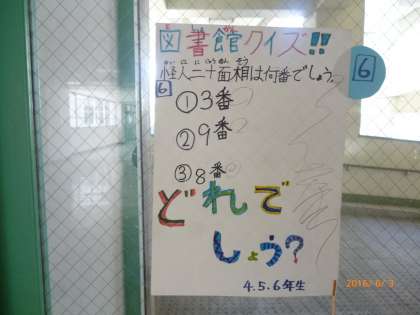 図書館クイズ!!
怪人二十面相は何番でしょう。
6
6
①3番
②9番
③8番
どれで
しょう?
4.5.6年生
2016/6/3